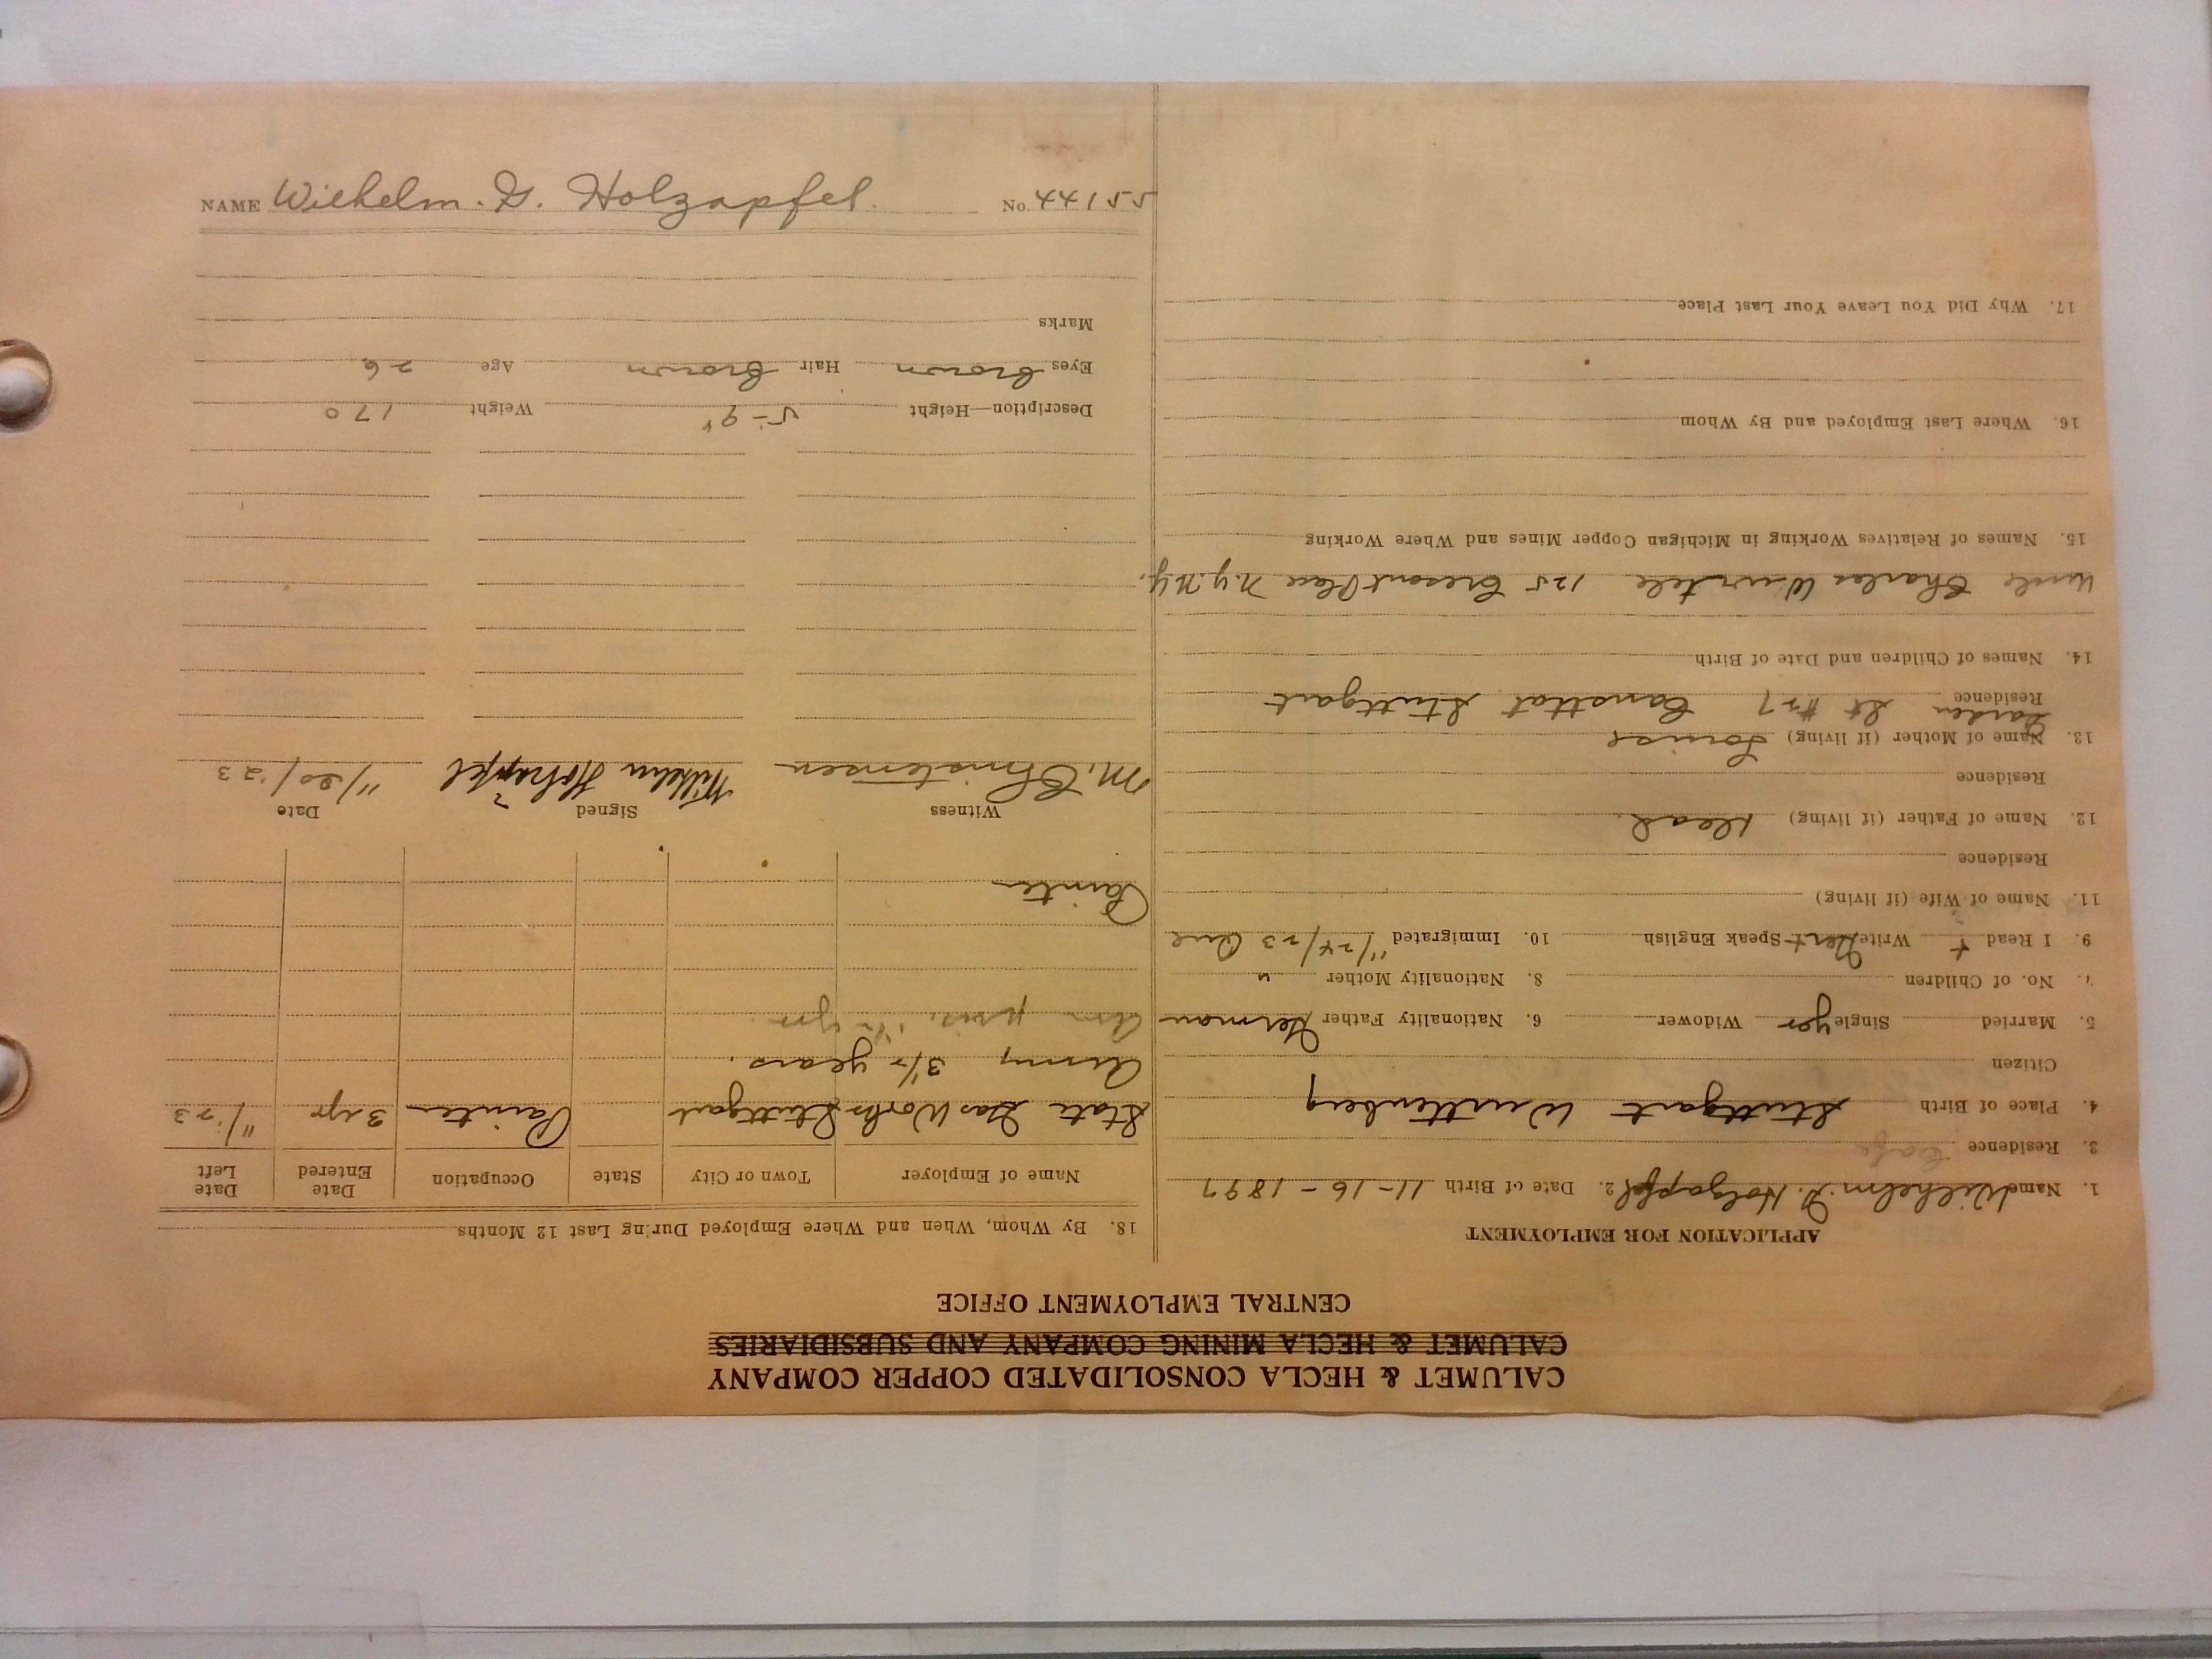 CALUMET & HECLA CONSOLIDATED COPPER COMPANY
CALUMET & HECLA MINING COMPANY AND SUBSIDIARIES
CENTRAL EMPLOYMENT OFFICE
APPLICATION FOR EMPLOYMENT
1. Name Wilhelm. G. Holzapfel 2. Date of Birth 11-16-1897
3. Residence
4. Place of Birth Stuttgart Wurttenberg
Citizen
5. Married Single yes Widower 6. Nationality Father German
7. No. of Children 8. Nationality Mother "
9. I Read + Write Speak English 10. Immigrated 11/24/23
11. Name of Wife (if living)
Residence
12. Name of Father (if living) Dead
Residence
13. Name of Mother (if living) Louise
Residence Garden St #27 Cansttat Stuttgart
14. Names of Children and Date of Birth
Uncle Charles Wurtele 125 Cresant Place N.Y. N.Y.
15. Names of Relatives Working in Michigan Copper Mines and Where Working
16. Where Last Employed and By Whom
17. Why Did You Leave Your Last Place
18. By Whom, When and Where Employed During Last 12 Months
Name of Employer Town or City State Occupation Date Entered Date Left
State Gas Works Stuttgart Painter 3 yr 11/23
Army 3 1/2 years.
Painter
Witness Signed Date
M. Christensen Wilhelm Holzapfel 11/30/23
Description—Height 5-9" Weight 170
Eyes Brown Hair Brown Age 26
Marks
NAME Wilhelm. G. Holzapfel. No. 44155